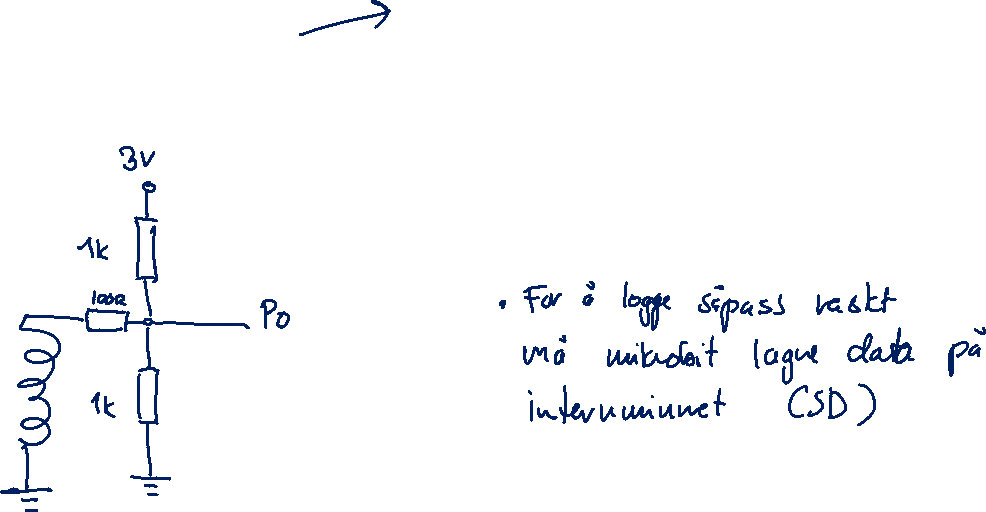 3V
1k
100Ω
P0
1k
• For å logge såpass raskt
må mikrobit lagre data på
internminnet (SD)